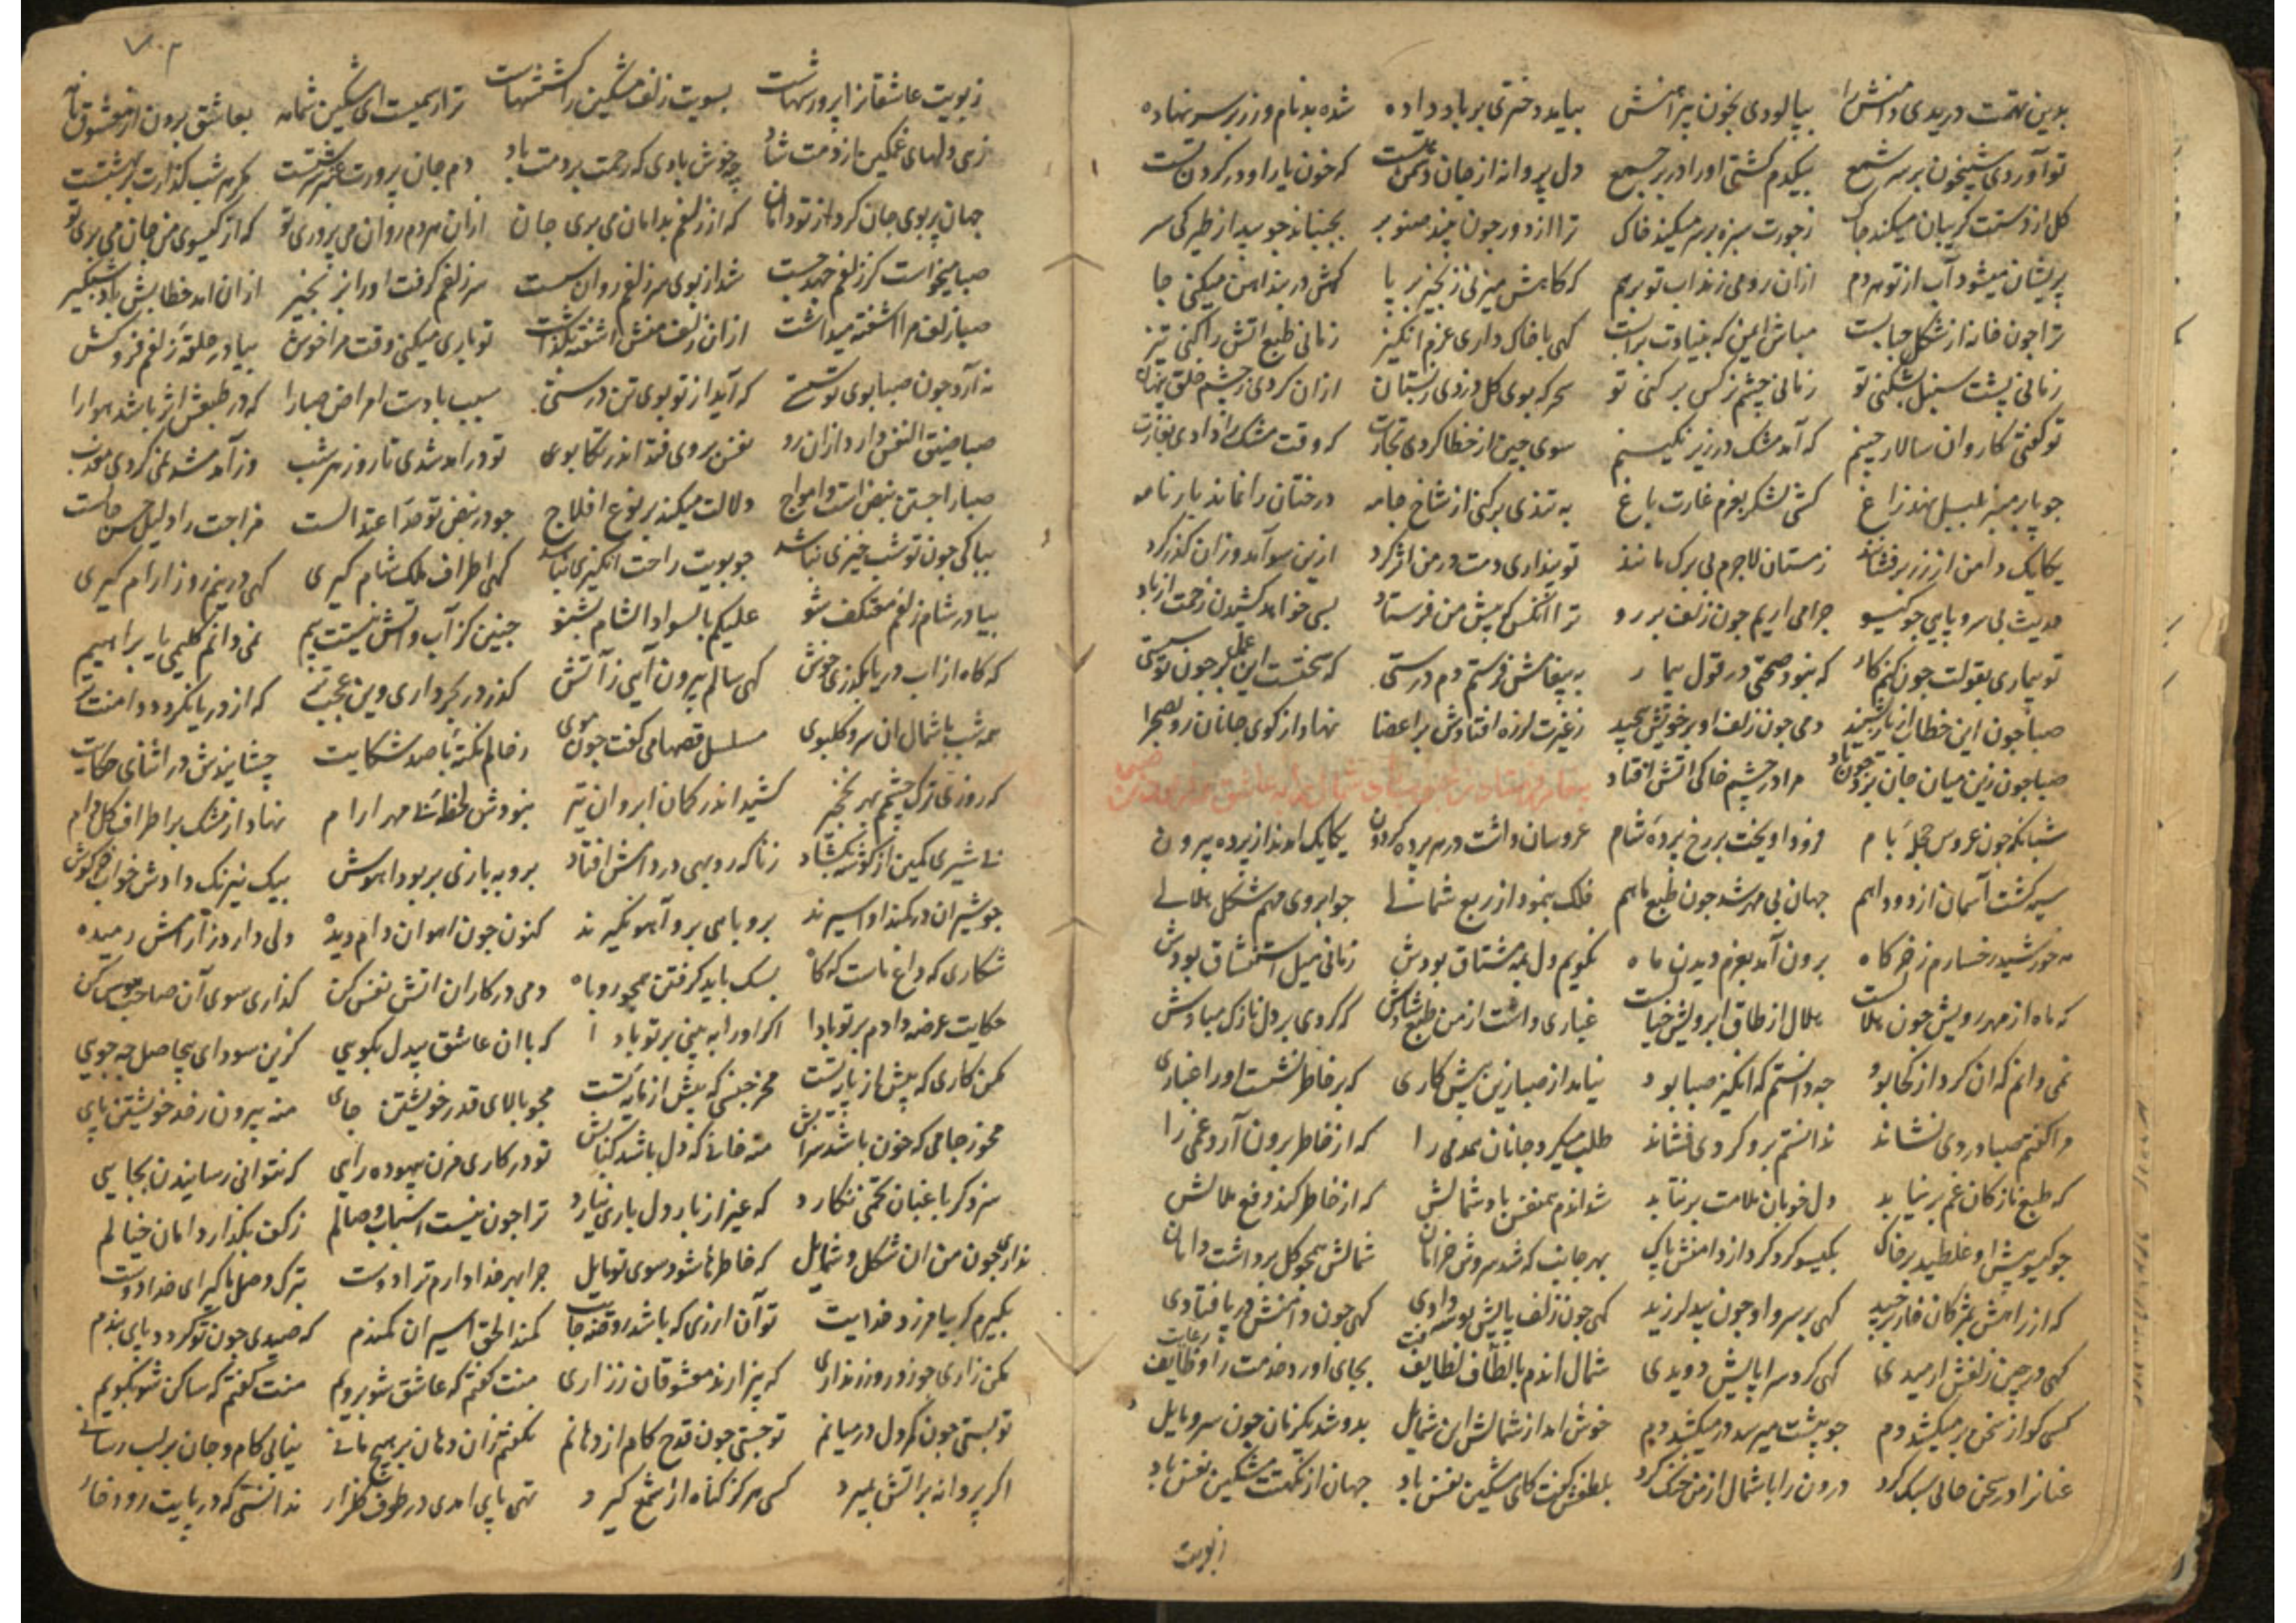 بدین تهمت دریدی دامنش را بیالودی بخون پیراهنش بیاید دختری بر باد داده شده بدنام و زر بر سر نهاده
تو آوردی شبیخون بر سر شمع بیکدم کشتی او را در بر جمع دل پروانه از جان دشمن تست که خون یار او در گردن تست
کل از دستت کریبان میکند چاک ز جورت سبزه بر سر میکند خاک ترا از دور چون بیند صنوبر بجنباند چو بید از طیرکی سر
پریشان میشود آب از تو هر دم ازان رو می زند اب تو بر هم که کاهش میزنی زنجیر بر پا کهش در بند اهن میکنی جا
ترا چون خانه از شکل حبابست مباش ایمن که بنیادت بر ابست کهی با خاک داری عزم انکیز زمانی طبع اتش را کنی تیز
زمانی پشت سنبل بشکنی تو زمانی چشم نرکس بر کنی تو سحر که بوی کل دزدی ز بستان ازان کردی ز چشم خلق پنهان
تو کفتی کاروان سالار چینم که آمد مشک در زیر نکینم سوی چین از خطا کردی تجارت که وقت مشک را دادی بغارت
چو بار منبر بلبل نهد زاغ کشی لشکر بعزم غارت باغ به تندی برکنی از شاخ جامه درختان را نماند بار نامه
یکایک دامن از زر برفشانند زمستان لاجرم بی برک مانند تو پنداری دمت در من اثر کرد ازین سو آمد و زان کذر کرد
حدیث بی سر و پایی چو کیسو چرا می اریم چون زلف بر رو ترا انکس که پیش من فرستاد بسی خواهد کشیدن زحمت از باد
تو بیماری بقولت چون کنم کار که نبود صحتی در قول بیمار به پیغامش فرستم دم درستی که سختست این عمل بر چون تو سستی
صبا چون این خطاب از یار بشنید دمی چون زلف او بر خویش پیچید ز غیرت لرزه افتادش بر اعضا نهاد از کوی جانان رو بصحرا
صبا چون زین میان جان برد چون باد مرا در چشم خاکی اتش افتاد
شبانکه چون عروس حجله بام فرود اویخت بر رخ پرده شام عروسان داشت در هر پرده کردون یکایک امدند از پرده بیرون
سیه کشت آسمان از دود اهم جهان بی مهر شد چون طبع ماهم فلک بنمود از ربع شمالی چو ابروی مهم شکل هلالی
مه خورشید رخسارم ز خرکاه برون آمد بعزم دیدن ماه نکویم دل بمه مشتاق بودش زمانی میل استنشاق بودش
که ماه از مهر رویش چون هلالست هلال از طاق ابرویش خیالست غباری داشت از من طبع شادش که کردی بر دل نازک مبادش
نمی دانم که ان کرد از کجا بود چه دانستم که انکیز صبا بود نیامد از صبا زین پیش کاری که بر خاطر نشست او را غباری
مرا کفتم صبا دردی نشاند ندانستم برو کردی فشاند طلب میکرد جانان همدمی را که از خاطر برون آرد غمی را
که طبع نازکان غم بر نیابد دل خوبان ملامت بر نتابد شد اندم همنفس باد شمالش که از خاطر کند دفع ملالش
چو کیسو پیش او غلطید بر خاک بکیسو کرد کرد از دامنش پاک بهر جانب که شد سروش خرامان شمالش همچو کل برداشت دامان
که از راهش بمژکان خار برچید کهی بر سرو او چون بید لرزید کهی چون زلف بپایش بوسه دادی کهی چون دامنش در پا فتادی
کهی در چین زلفش ارمیدی کهی کرد سراپایش دویدی شمال اندم بالطاف لطایف بجای اورد خدمت را وظایف
کسی کو از سخن بر میکشد دم چو پشت میرسد در میکشد دم خوش امد از شمالش این شمایل بدو شد یکزمان چون سرو مایل
عنان را در سخن حالی سبک کرد درون را با شمال از من خنک کرد بلطفش کفت کای مشکین نفس باد جهان از نکهتت مشکین نفس باد
ز بویت
ز بویت عاشقانرا پرورشهاست بسویت زلف مشکین را کششهاست ترا رسمیست ای مشکین شمامه بعاشق بردن از معشوق نامه
زهی دلهای غمکین از دمت شاد چه خوش بادی که رحمت بر دمت باد دم جان پرورت عنبر سرشتست مکر هر شب کذارت بر بهشتست
جهان پر بوی جان کرد از تو دامان که از زلفم بدامان می بری جان ازان هر دم روان می پروری تو که از کیسوی من جان می بری تو
صبا میخواست کز زلفم جهد چست شد از بوی سر زلفم روان سست سر زلفم کرفت او را بزنجیر ازان امد خطابش باد شبکیر
صبا زلف مرا اشفته میداشت ازان زلف منش اشفته بکذاشت تو باری میکنی وقت مرا خوش بیا در حلقه زلفم فرو کش
نه آرد چون صبا بوی تو سستی که آید از تو بوی تن درستی سبب بادت امراض صبا را که در طبعش اثر باشد هوا را
صبا ضیق النفس دارد ازان رد نفس بر وی فتد اندر تکاپوی تو در امد شدی تا روز هر شب وز آمد شد نمی کردی معذب
صبا را جستن نبض است و امواج دلالت میکند بر نوع افلاج چو در نبض تو حد اعتدالست مزاجت را دلیل حسن حالست
بپاکی چون تو شب خیزی نباشد چو بویت راحت انکیزی نباشد کهی اطراف ملک شام کیری کهی در نیم روز ارام کیری
بیا در شام زلفم معتکف شو علیکم بالسواد الشام بشنو چنین کز آب و اتش نیستت بیم نمی دانم کلیمی یا براهیم
که کاه از اب دریا بکذری خوش کهی سالم برون آیی ز آتش کذر در بحر داری وین عجب نیست که از دریا نکردد دامنت تر
همه شب با شمال ان سرو کلبوی مسلسل قصها می کفت چون موی رخ اوم نکته با صد شکایت چشانیدش در اثنای حکایت
که روزی ترک چشمم بهر نخجیر کشید اندر کمان ابروان تیر نبودش لحظه مهر ارام نهاد از مشک بر اطراف کل دام
نه شیری کمین از کوشه بکشاد ز ناکه روبهی در دامش افتاد به روبه بازی بربود اهوش بیک نیرنک دادش خواب خرکوش
چو شیران در کمند او اسیرند بروباهی برو آهو نکیرند کنون چون اهوان دام دیده دلی دارد ز آرامش رمیده
شکاری که داغ ماست که کاه بسک باید کرفتن همچو روباه دمی در کار ان اتش نفس کن کذاری سوی آن صاحب هوس کن
حکایت عرضه دادم بر تو بادا اکر او را به بینی بر تو بادا که با ان عاشق بیدل بکویی کزین سودای بیحاصل چه جویی
مکن کاری که بیش از یار تست مخر جنسی که بیش از مایه تست مجو بالای قدر خویشتن جای منه بیرون ز حد خویشتن پای
مخور جامی که خون باشد شرابش منه خانی که دل باشد کبابش تو در کاری مزن بیهوده رایی که نتوانی رسانیدن بجایی
سزد کر باغبان تخمی نکارد که غیر از بار دل باری نیارد ترا چون نیست اسباب وصالم ز کف بکذار دامان خیالم
نداری چون من ان شکل و شمایل که خاطرها شود سوی تو مایل چرا بهر خدا دارم ترا دوست بترک وصل ما کیر ای خدا دوست
بکیرم کر بیامرزد خدایت تو آن ارزی که باشد روضه جایت کمند الحق اسیر ان کمندم که صیدی چون تو کردد پای بندم
مکن زاری چو زور و زر نداری که بیزارند معشوقان ز زاری منت کفتم که عاشق شو برویم منت کفتم که ساکن شو بکویم
تو بستی چون کمر دل در میانم تو جستی چون قدح کام از دهانم نکفتم زان دهان بر هیچ مانی نیابی کام و جان بر لب رسانی
اکر پروانه بر اتش بمیرد کسی هرکز کناه از شمع کیرد تهی پای امدی در طرف کلزار ندانستی که در پایت رود خار